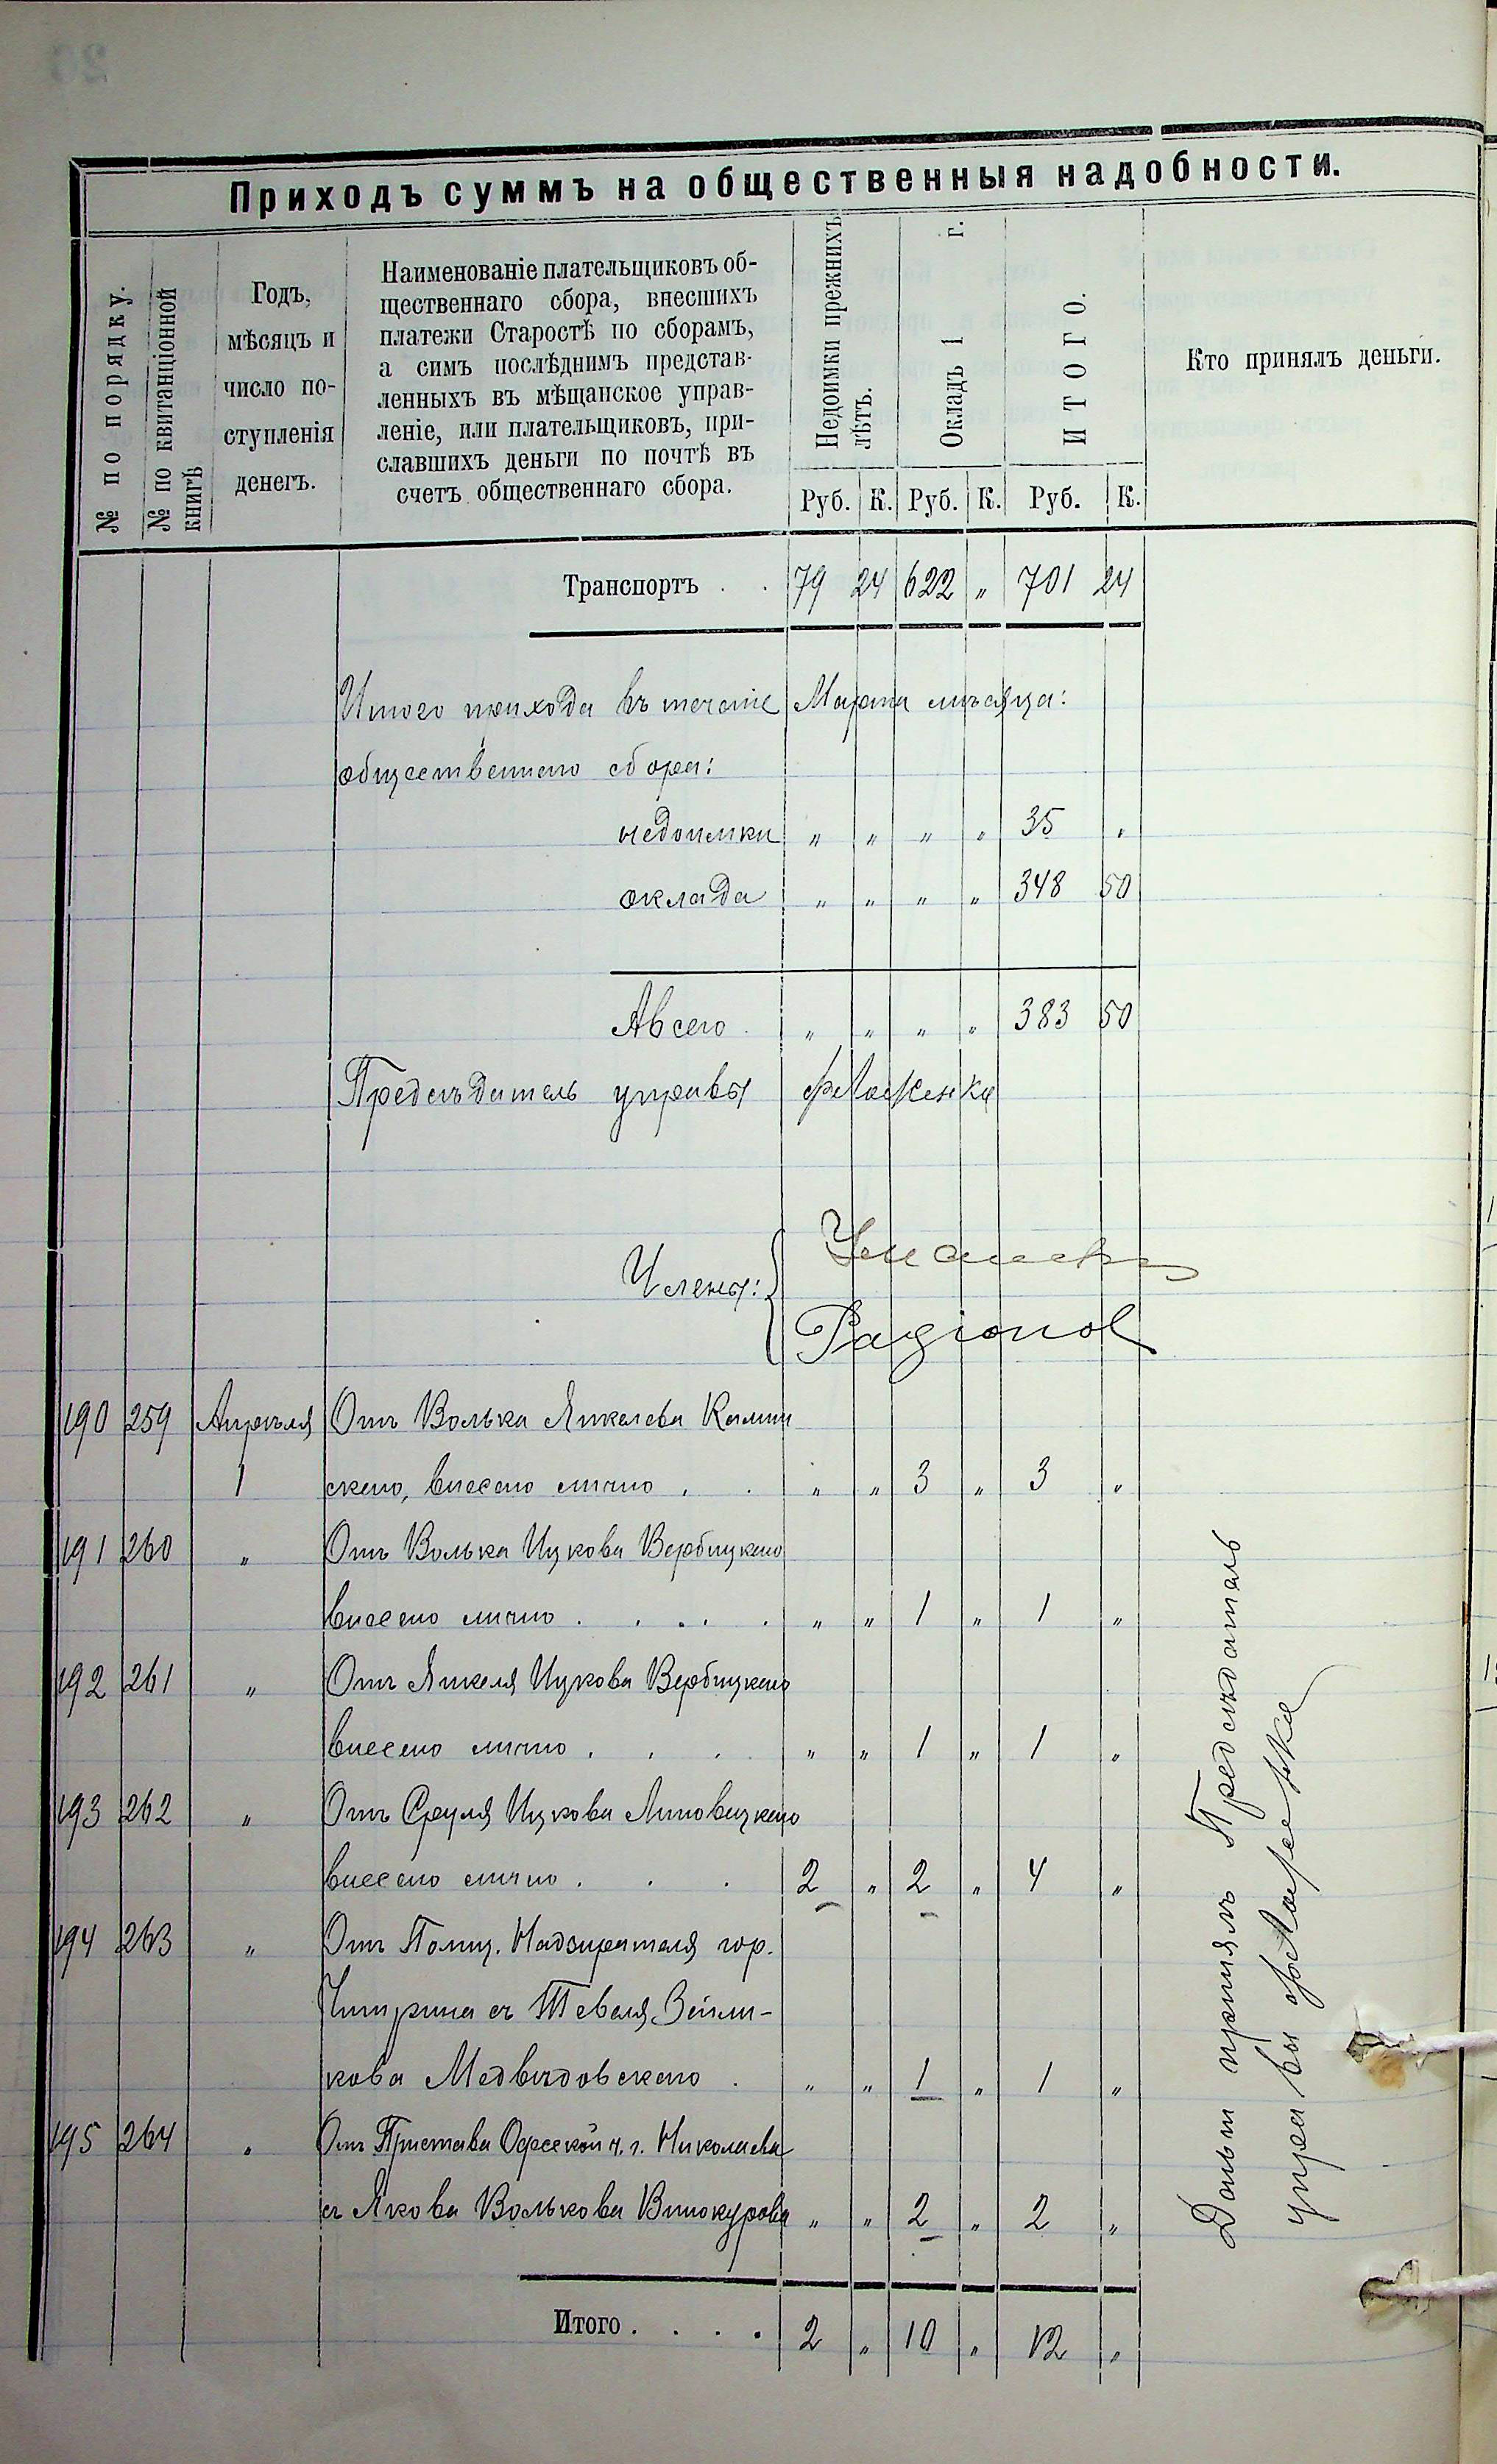 Приходъ суммъ на общественныя надобности.
№ по порядку.
№ по квитанціонной книгѣ
Годъ,
мѣсяцъ и
число по-
ступленія
денегъ.
Наименованіе плательщиковъ об-
щественнаго сбора, внесшихъ
платежи Старостѣ по сборамъ,
а симъ послѣднимъ представ-
ленныхъ въ мѣщанское управ-
леніе, или плательщиковъ, при-
славшихъ деньги по почтѣ въ
счетъ общественнаго сбора.
Недоимки прежнихъ
лѣтъ.
Окладъ 1 г.
ИТОГО.
Кто принялъ деньги.
Руб. К. Руб. К. Руб. К.
Транспортъ . . 79 24 622 " 701 24
Итого прихода въ теченіе Марта мѣсяца:
общественнаго сбора:
недоимки " " " " 35 "
оклада " " " " 348 50
А всего . " " " " 383 50
Предсѣдатель управы
Члены:
190 259 Апрѣля Отъ Волька Янкелева Калин
1 скаго, внесено лично . . " " 3 " 3 "
191 260 " Отъ Волька Ицкова Вербицкаго
внесено лично . . . . . " " 1 " 1 "
192 261 " Отъ Янкеля Ицкова Вербицкаго
внесено лично . . . " " 1 " 1 "
193 262 " Отъ Сруля Ицкова Липовецкаго
внесено лично . . . 2 " 2 " 4 "
194 263 " Отъ Полиц. Надзирателя гор.
Чигирина съ Тевеля Зейли-
кова Медвѣдовскаго . " " 1 " 1 "
195 264 " Отъ Пристава Одесской ч. г. Николаева
съ Якова Волькова Винокурова " " 2 " 2 "
Итого . . . . 2 " 10 " 12 "
Деньги принялъ Предсѣдатель
управы